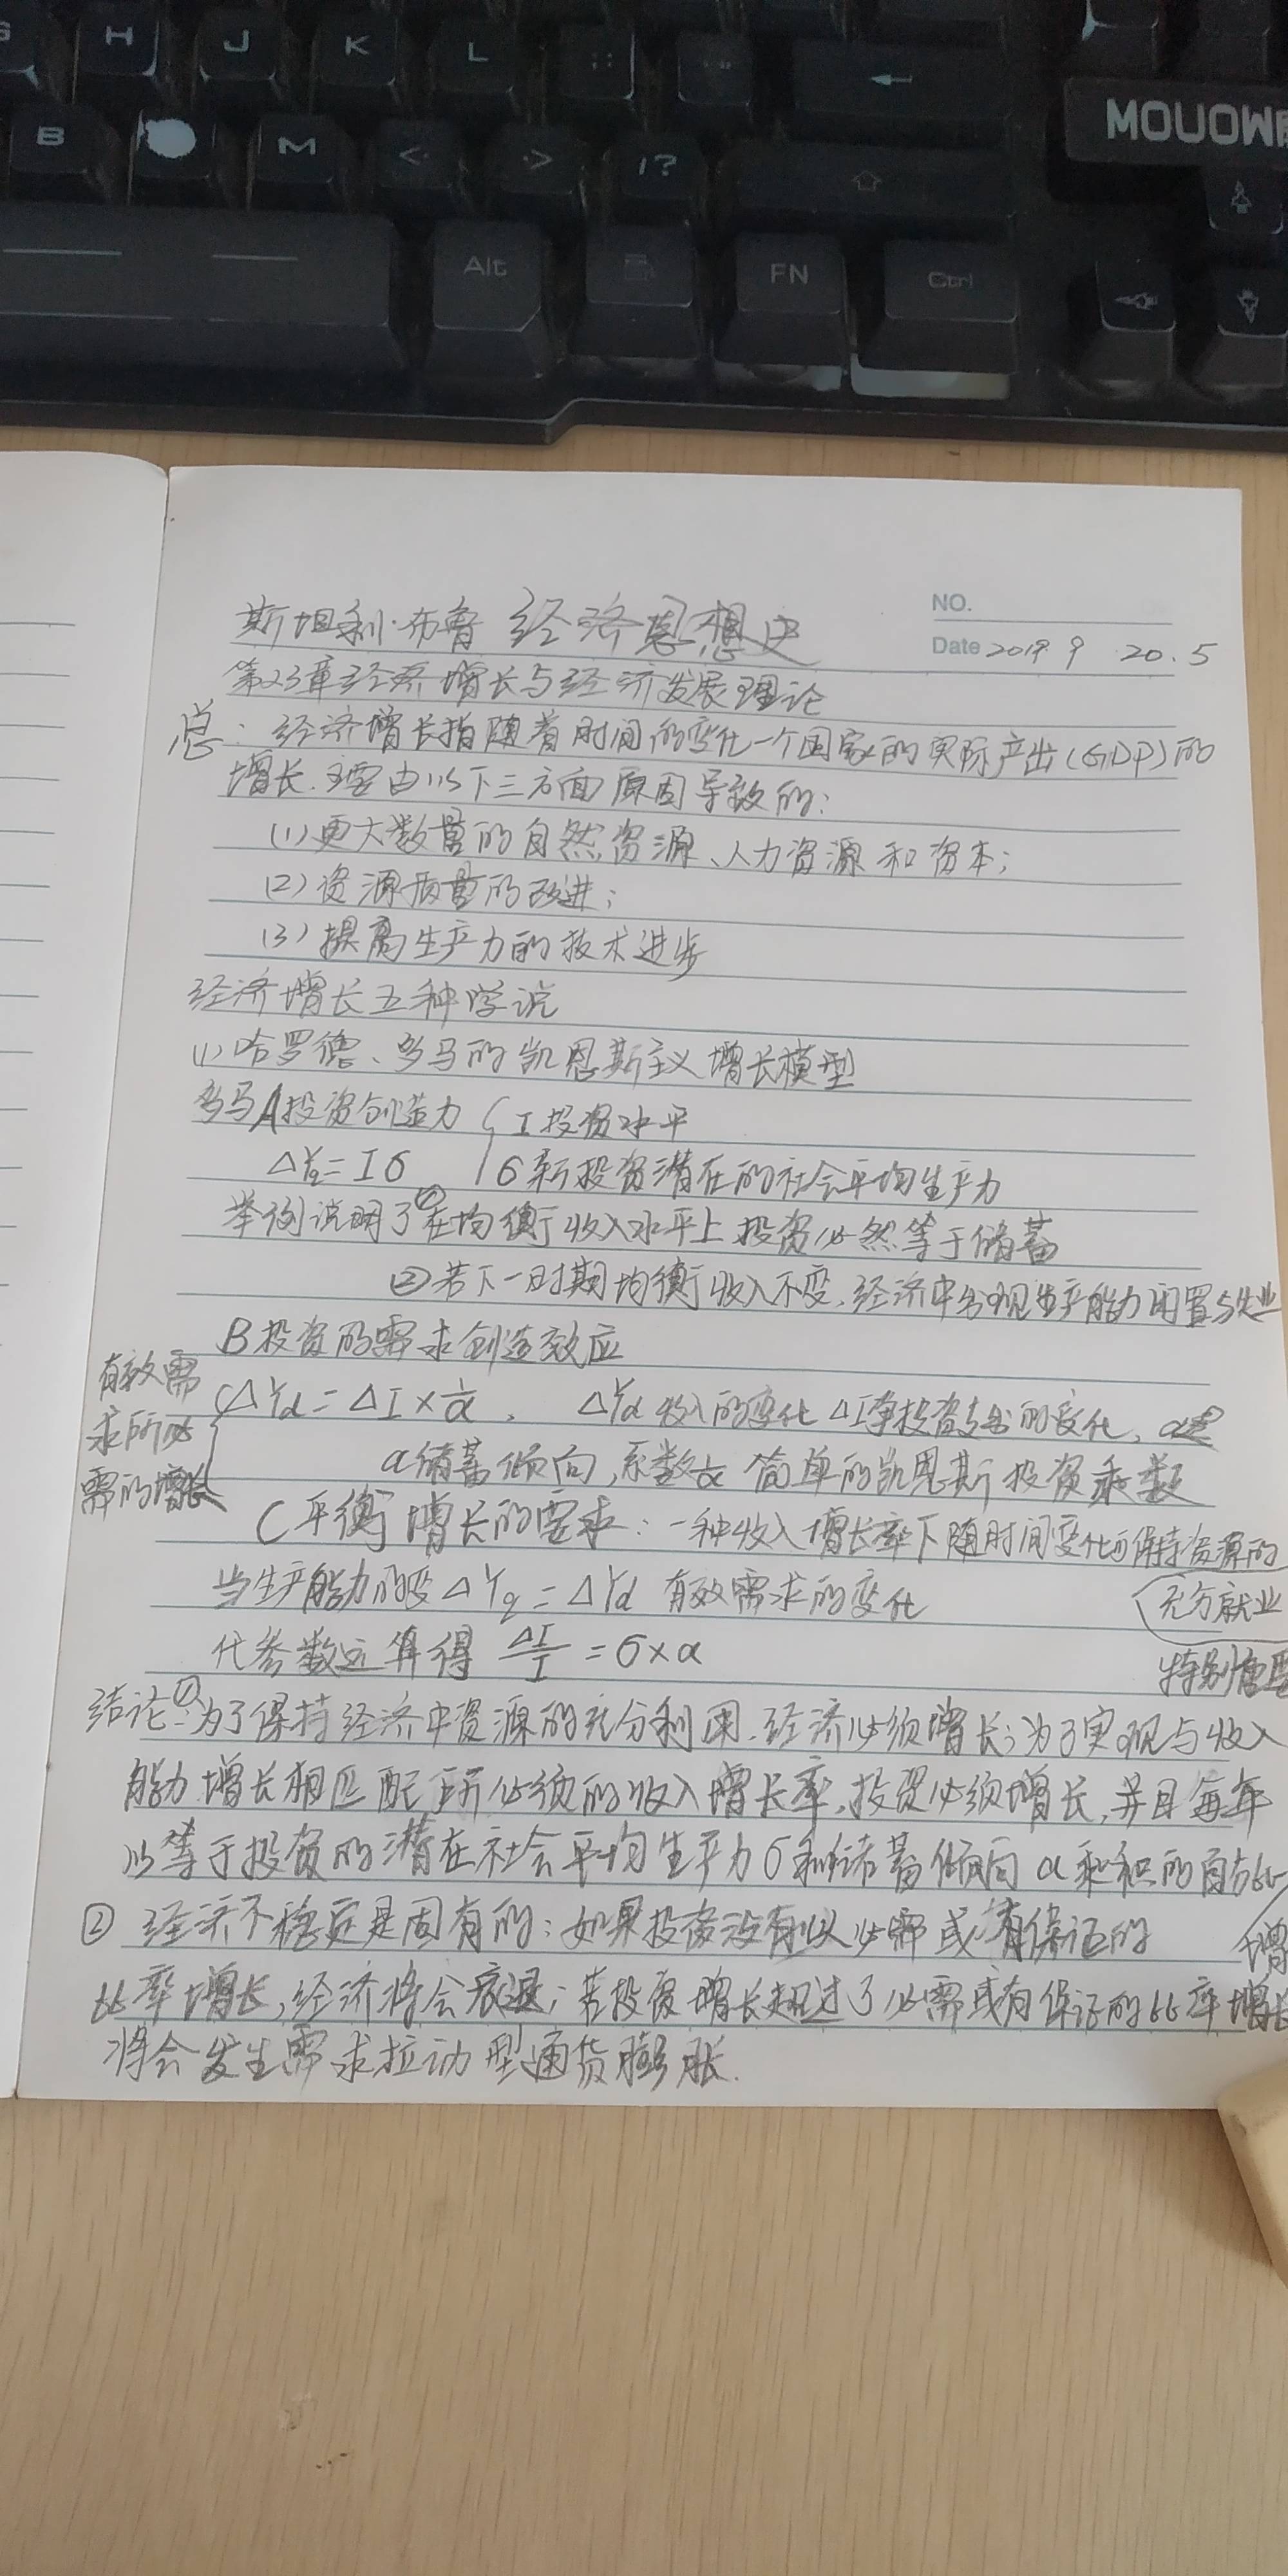 G H J K L
B M < > /?
MOUOW
Alt FN Ctrl
NO.
斯坦利·布鲁 经济思想史
Date 2019 9 20.5
第23章经济增长与经济发展理论
总:经济增长指随着时间的变化一个国家的实际产出(GDP)的
增长.主要由以下三方面原因导致的:
(1)更大数量的自然资源、人力资源和资本;
(2)资源质量的改进;
(3)提高生产力的技术进步
经济增长五种学说
(1)哈罗德、多马的凯恩斯主义增长模型
多马A投资创造力 { I投资水平
ΔYq=Iσ σ新投资潜在的社会平均生产力
举例说明了①在均衡收入水平上投资必然等于储蓄
②若下一时期均衡收入不变,经济中出现生产能力闲置与失业
B投资的需求创造效应
有效需
求所必
需的增长
ΔYd=ΔI×1/α, ΔYd收入的变化 ΔI净投资支出的变化,
α储蓄倾向,系数1/α 简单的凯恩斯投资乘数
C平衡增长的要求:一种收入增长率下随时间变化可保持资源的
充分就业
当生产能力的改ΔYq=ΔYd 有效需求的变化
代参数运算得 ΔI/I=σ×α
特别
结论:①为了保持经济中资源的充分利用,经济必须增长;为了实现与收入
能力增长相匹配所必须的收入增长率,投资必须增长,并且每年
以等于投资的潜在社会平均生产力σ和储蓄倾向α乘积的百分比
增
②经济不稳定是固有的:如果投资没有以必需或有保证的
比率增长,经济将会衰退;若投资增长超过了必需或有保证的比率增长
将会发生需求拉动型通货膨胀.